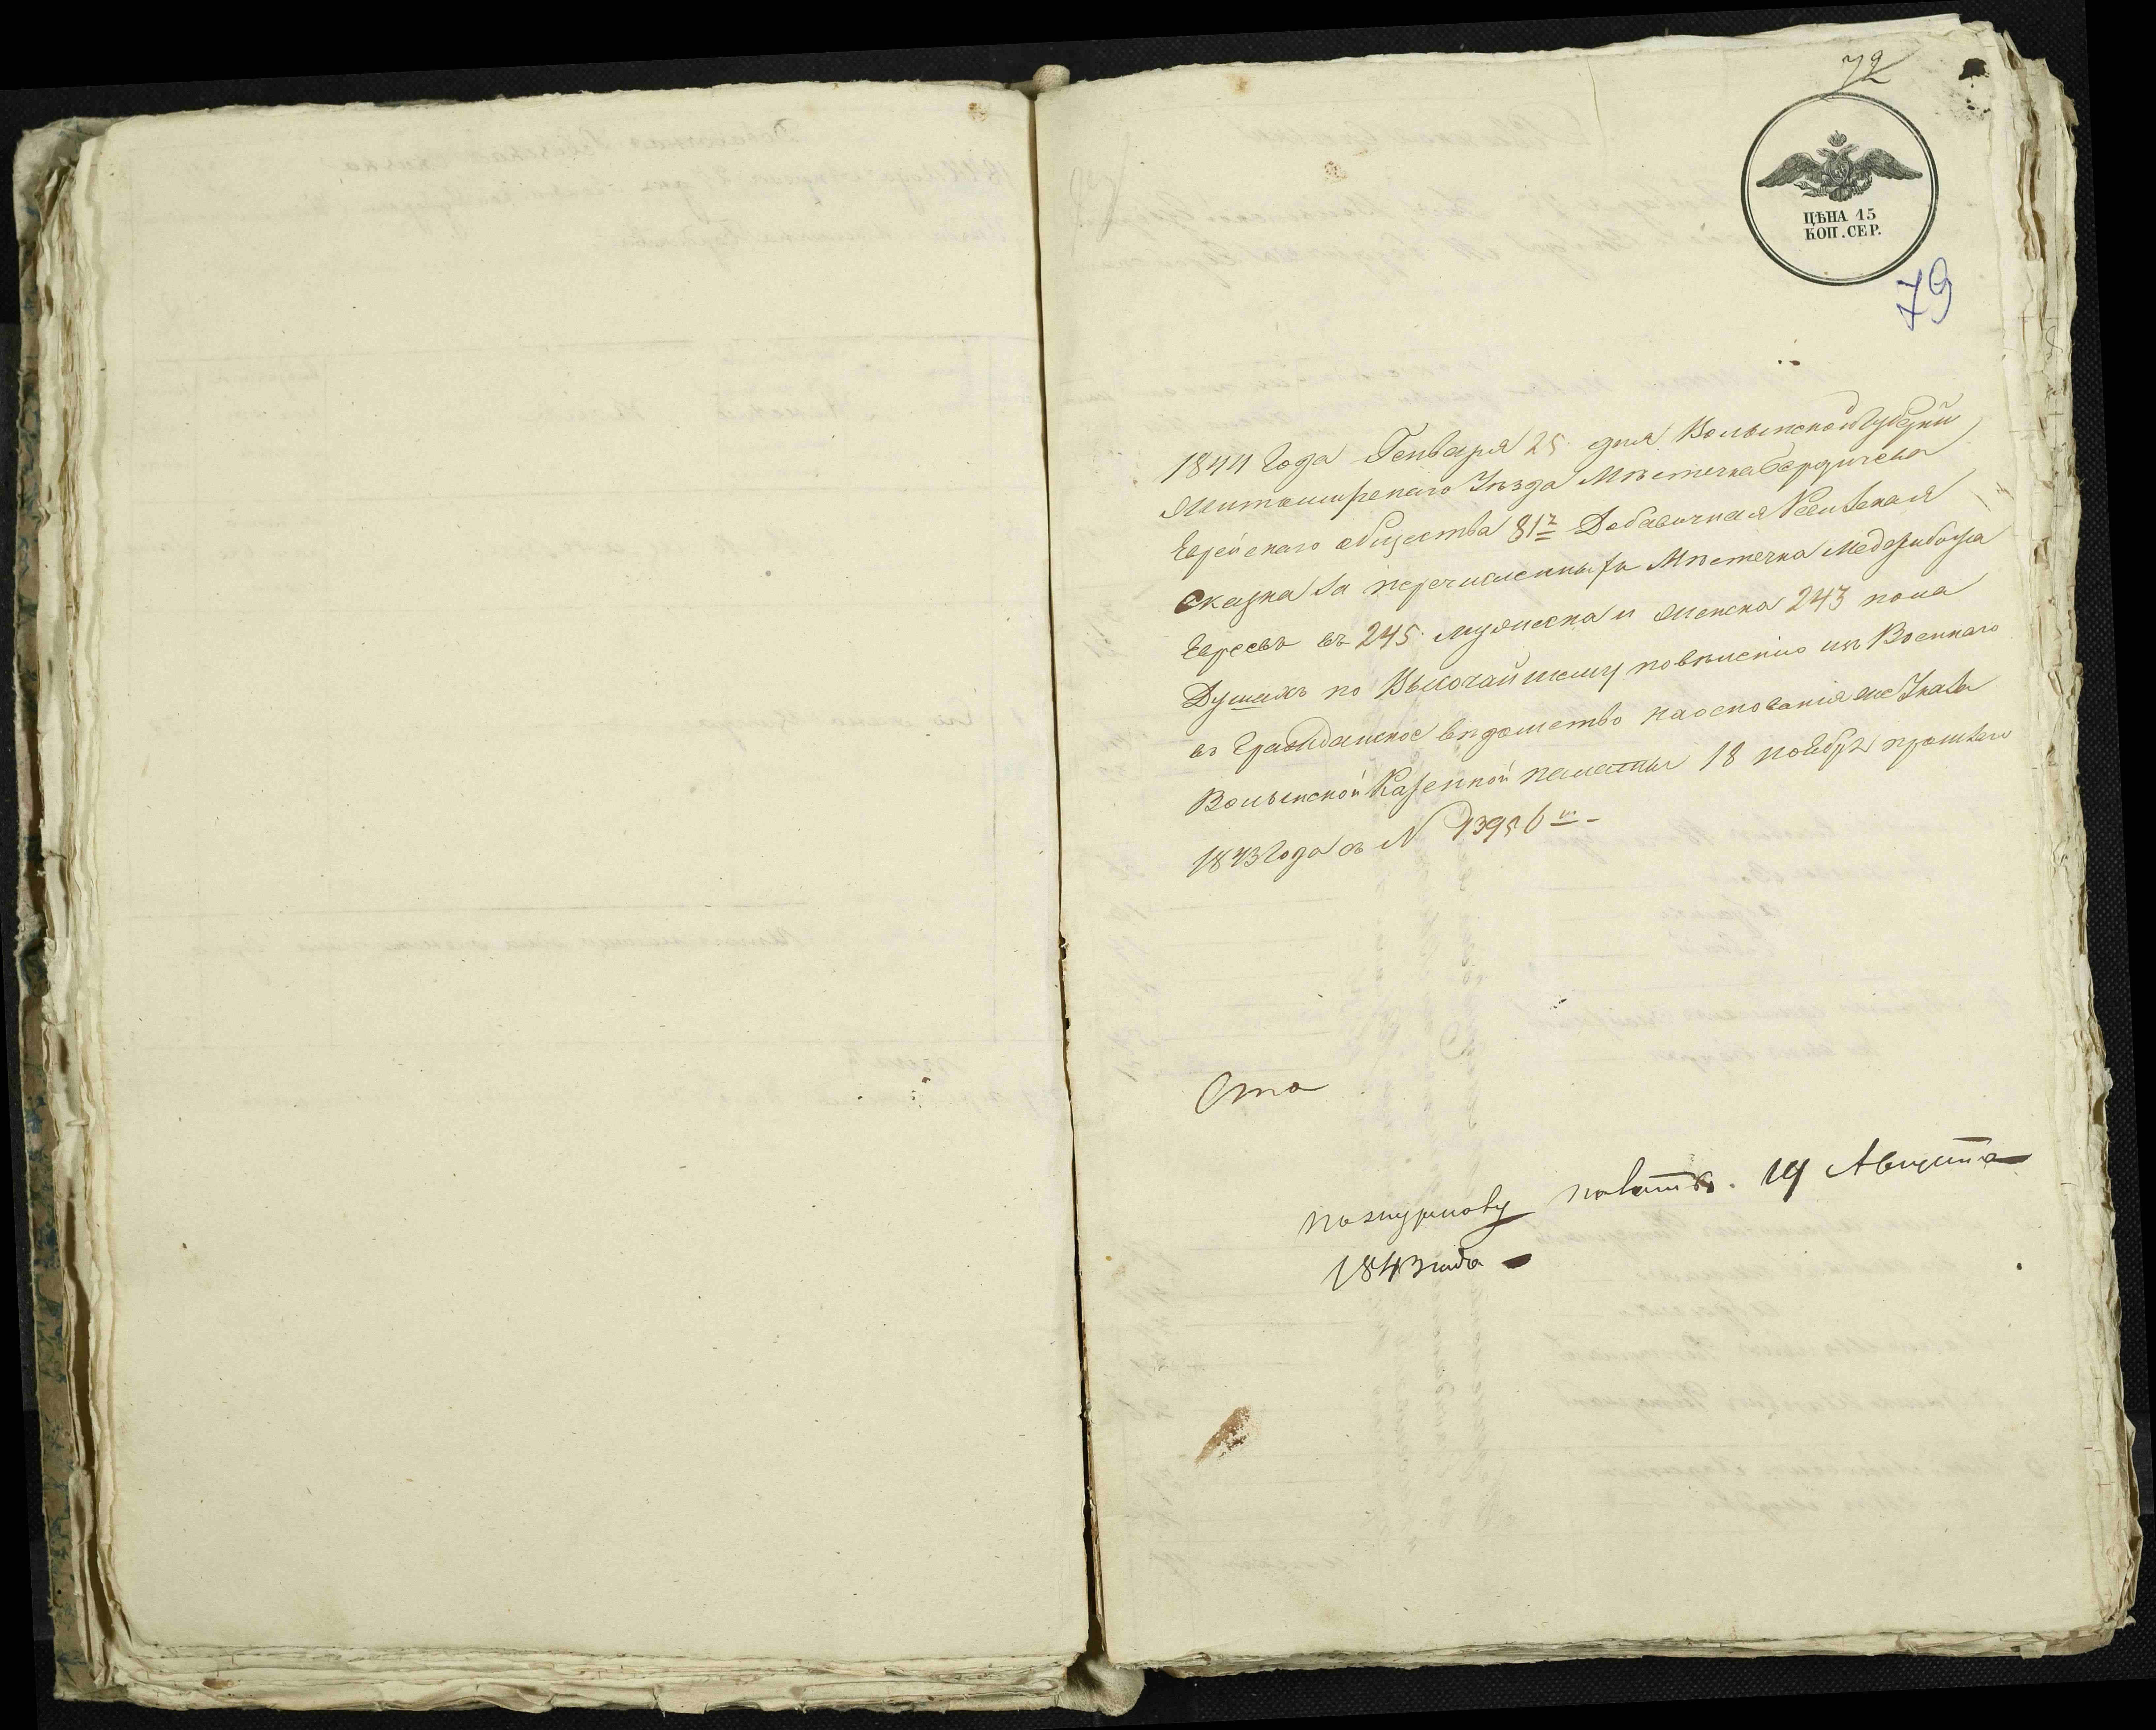 72
ЦѢНА 15
КОП. СЕР.
79
1844 Года Генваря 25 дня Волынской Губернии
Житомирскаго Уѣзда Мѣстечка Бердичева
Еврейскаго общества 81я Добавочная Ревизская
Сказка за перечисленныхъ Мѣстечка Меджибожа
Евреевъ въ 245 мужеска и женска 243 пола
Душахъ по Высочайшему повѣленію изъ Военнаго
въ Гражданское вѣдомство на основаніи же Указа
Волынской Казенной палаты 18 ноября прошлаго
1843 Года за N 13956мъ
по журналу палаты 19 Августа
1843 года